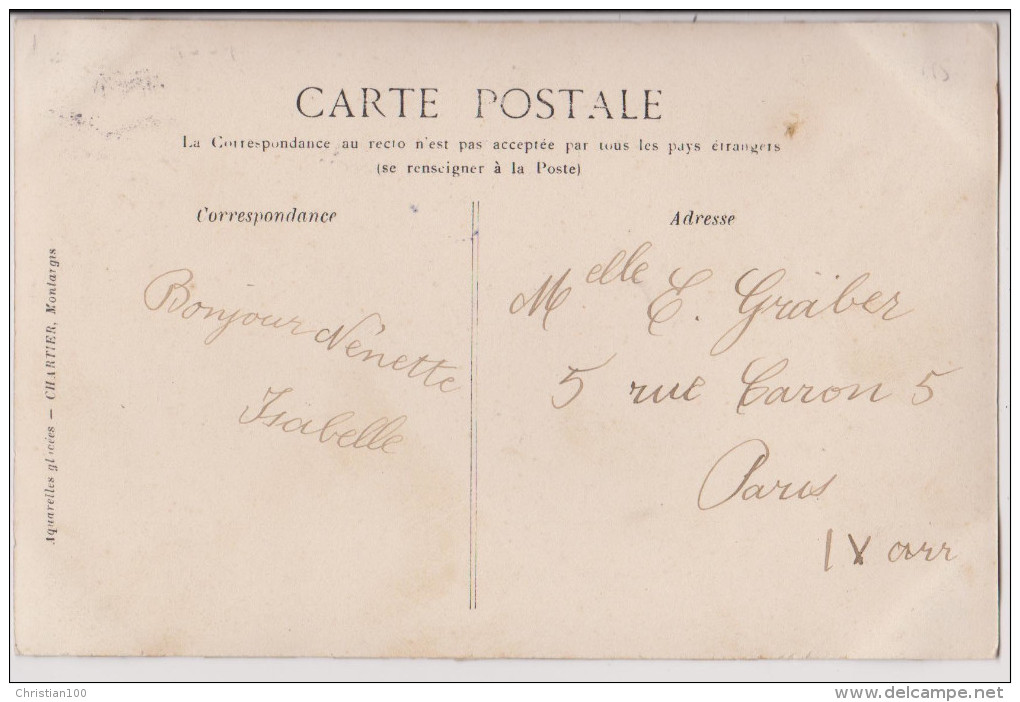 CARTE POSTALE
La Correspondance au recto n'est pas acceptée par tous les pays étrangers
(se renseigner à la Poste)
Correspondance
Adresse
Aquarelles glacées — CHARTIER, Montargis
Bonjour Nénette
Isabelle
Melle E. Gräber
5 rue Caron 5
Paris
IX arr
Christian100
www.delcampe.net